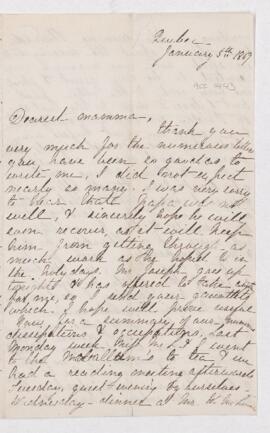 Quebec
January 5th 1869
Dearest mamma,
thank you
very much for the numerous letters
you have been so good as to
write me, I did not expect
nearly so many. I was very sorry
to hear that Papa was not
well, & sincerely hope he will
soon recover, as it will keep
him from getting through as
much work as he hoped to in
the holydays. Mr Joseph goes up
tonight & has offered to take
for me, so I send your
which I hope will prove
Now for a summary of our
dissipations & occupations, last
Monday week
to the to tea & we
had a reading meeting afterwards
Tuesday, quiet evening by ourselves
Wednesday - dined at Mr